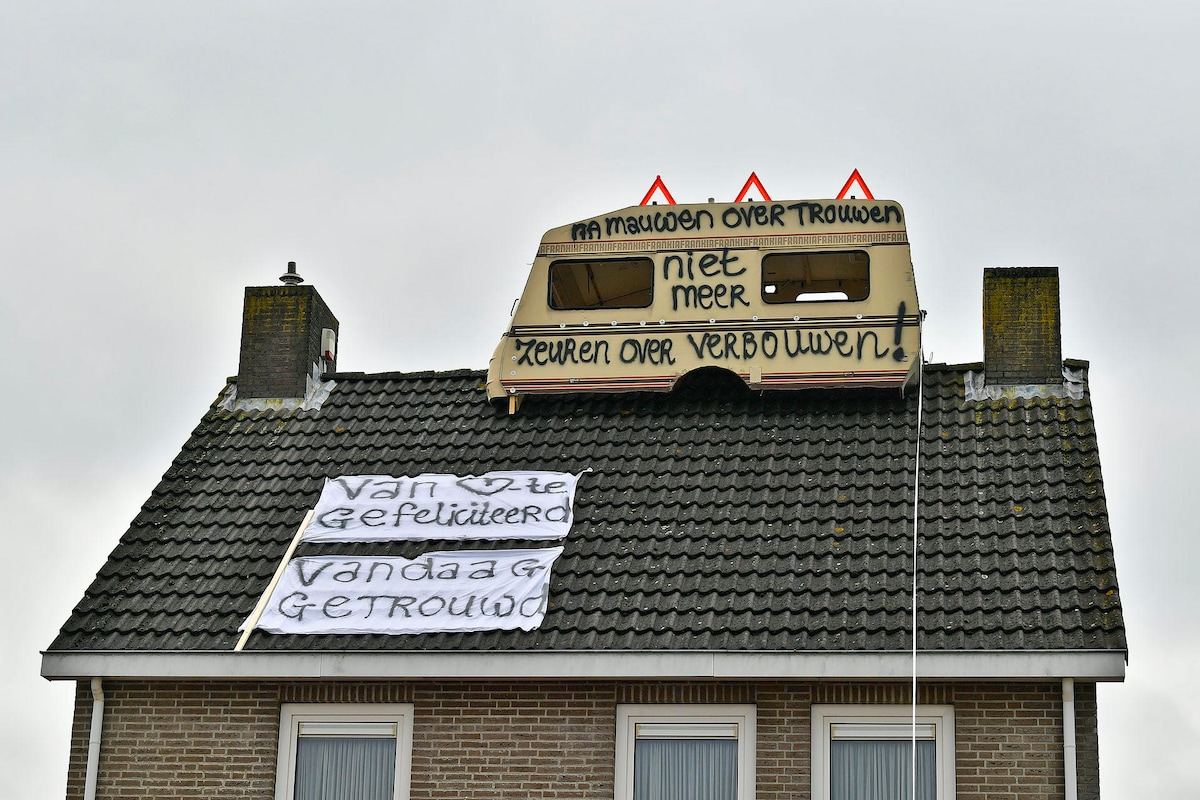 NA mauwen over Trouwen
AFRANKIAFRANKIAFRANKIAFRANKIAFRANKIAFRANKIAFRANKIAFRANKIAFRANKIA
niet
meer
Zeuren over verbouwen!
Van ♡-te
Gefeliciteerd
Vandaag
Getrouwd